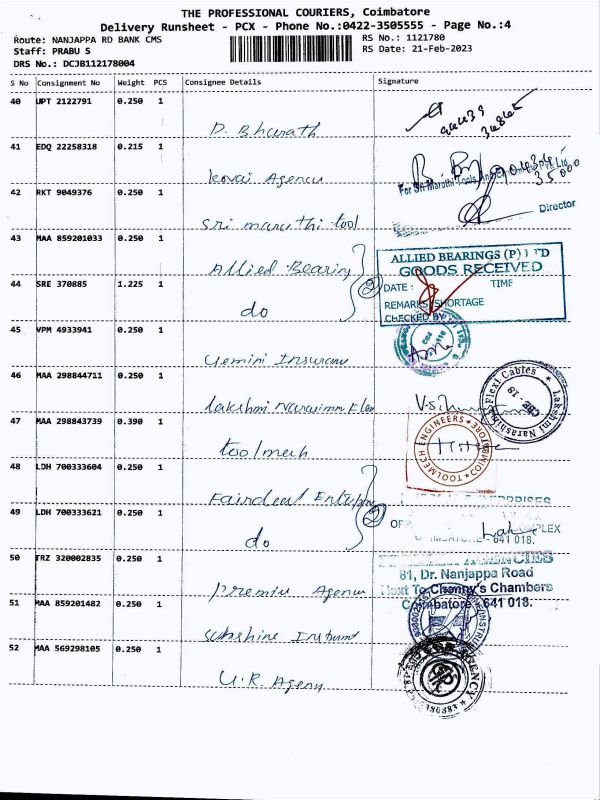 THE PROFESSIONAL COURIERS, Coimbatore
Delivery Runsheet - PCX - Phone No.:0422-3505555 - Page No.:4
Route: NANJAPPA RD BANK CMS
RS No.: 1121780
Staff: PRABU S
RS Date: 21-Feb-2023
DRS No.: DCJB112178004
S No Consignment No Weight PCS Consignee Details Signature
40 UPT 2122791 0.250 1
D. Bharath
41 EDQ 22258318 0.215 1
Kovai Agency
42 RKT 9049376 0.250 1
For Sri Maruthi Tools
Director
Sri maruthi tool
43 MAA 859201033 0.250 1
Allied Bearing
ALLIED BEARINGS (P) LTD
GOODS RECEIVED
44 SRE 370885 1.225 1
DATE : TIME
do
2
REMARKS/SHORTAGE
CHECKED BY
45 VPM 4933941 0.250 1
Gemini Insuran
46 MAA 298844711 0.250 1
Flexi Cables * Lakshmi Narashima
CBE - 18
Lakshmi Naraimn Flex
47 MAA 298843739 0.390 1
TOOLMECH ENGINEERS * COIMBATORE *
toolmech
48 LDH 700333604 0.250 1
Fairdeal Enterpri
49 LDH 700333621 0.250 1
do
2
641 018.
50 TRZ 320002835 0.250 1
AGENCIES
81, Dr. Nanjappa Road
Next To Channy's Chambers
Coimbatore - 641 018.
Premier Agency
51 MAA 859201482 0.250 1
Sunshine Instrumt
52 MAA 569298105 0.250 1
U.R Agency